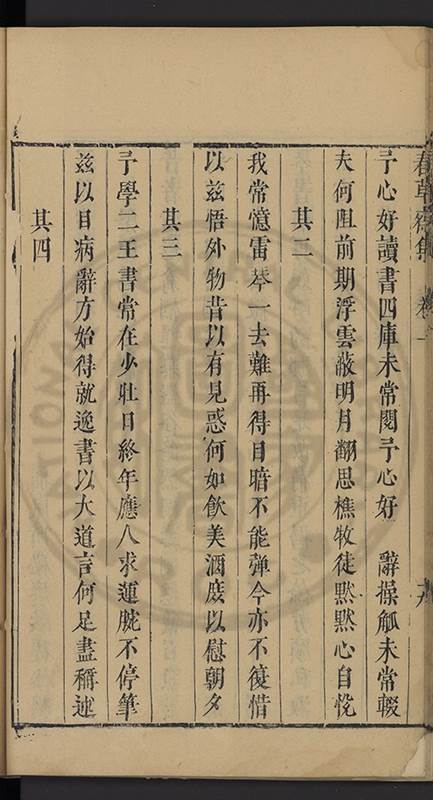 春草齋集 卷一
予心好讀書四庫未常閱予心好 辭操觚未常輟
夫何阻前期浮雲蔽明月翻思樵牧徒黙黙心自恱
其二
我常憶雷琴一去難再得目暗不能弹今亦不復惜
以兹悟外物昔以有見惑何如飲美酒庶以慰朝夕
其三
予學二王書常在少壯日終年應人求運腕不停筆
兹以目病辭方始得就逸書以大道言何足盡稱述
其四